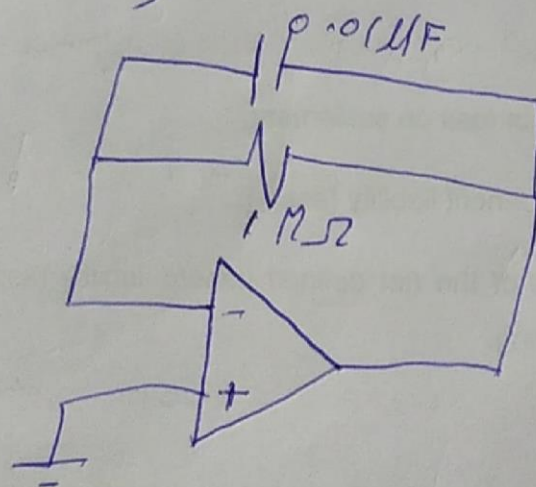 0.01µF
1 MΩ
-
+